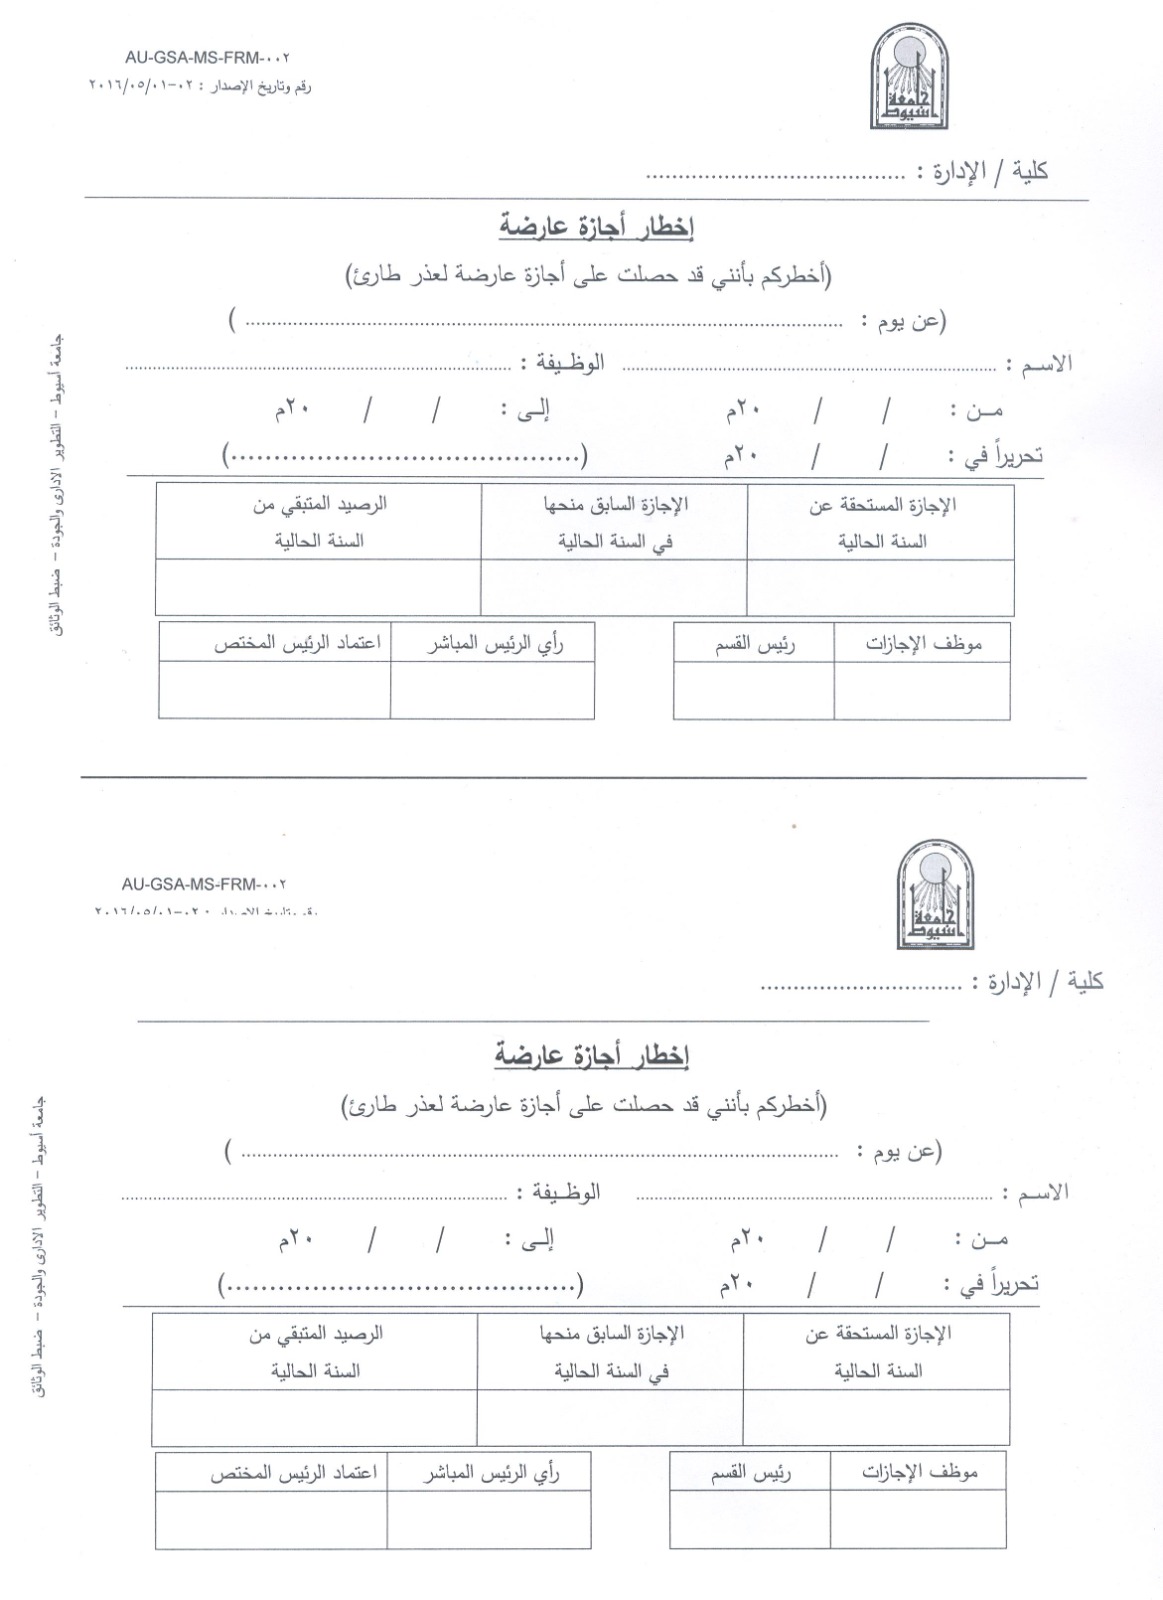 AU-GSA-MS-FRM-٠٠٢
رقم وتاريخ الإصدار : ٠٢-٢٠١٦/٠٥/٠١
جامعة أسيوط
كلية / الإدارة : ........................................
إخطار أجازة عارضة
(أخطركم بأنني قد حصلت على أجازة عارضة لعذر طارئ)
(عن يوم : ................................................................ )
الاسـم : ................................................ الوظـيفة : ................................................
مـن : / / ٢٠م إلـى : / / ٢٠م
تحريراً في : / / ٢٠م (........................................)
الإجازة المستحقة عن السنة الحالية
الإجازة السابق منحها في السنة الحالية
الرصيد المتبقي من السنة الحالية
موظف الإجازات رئيس القسم رأي الرئيس المباشر اعتماد الرئيس المختص
جامعة أسيوط – التطوير الادارى والجودة – ضبط الوثائق
AU-GSA-MS-FRM-٠٠٢
رقم وتاريخ الإصدار : ٠٢-٢٠١٦/٠٥/٠١
جامعة أسيوط
كلية / الإدارة : ...............................
إخطار أجازة عارضة
(أخطركم بأنني قد حصلت على أجازة عارضة لعذر طارئ)
(عن يوم : ................................................................ )
الاسـم : ................................................ الوظـيفة : ................................................
مـن : / / ٢٠م إلـى : / / ٢٠م
تحريراً في : / / ٢٠م (........................................)
الإجازة المستحقة عن السنة الحالية
الإجازة السابق منحها في السنة الحالية
الرصيد المتبقي من السنة الحالية
موظف الإجازات رئيس القسم رأي الرئيس المباشر اعتماد الرئيس المختص
جامعة أسيوط – التطوير الادارى والجودة – ضبط الوثائق